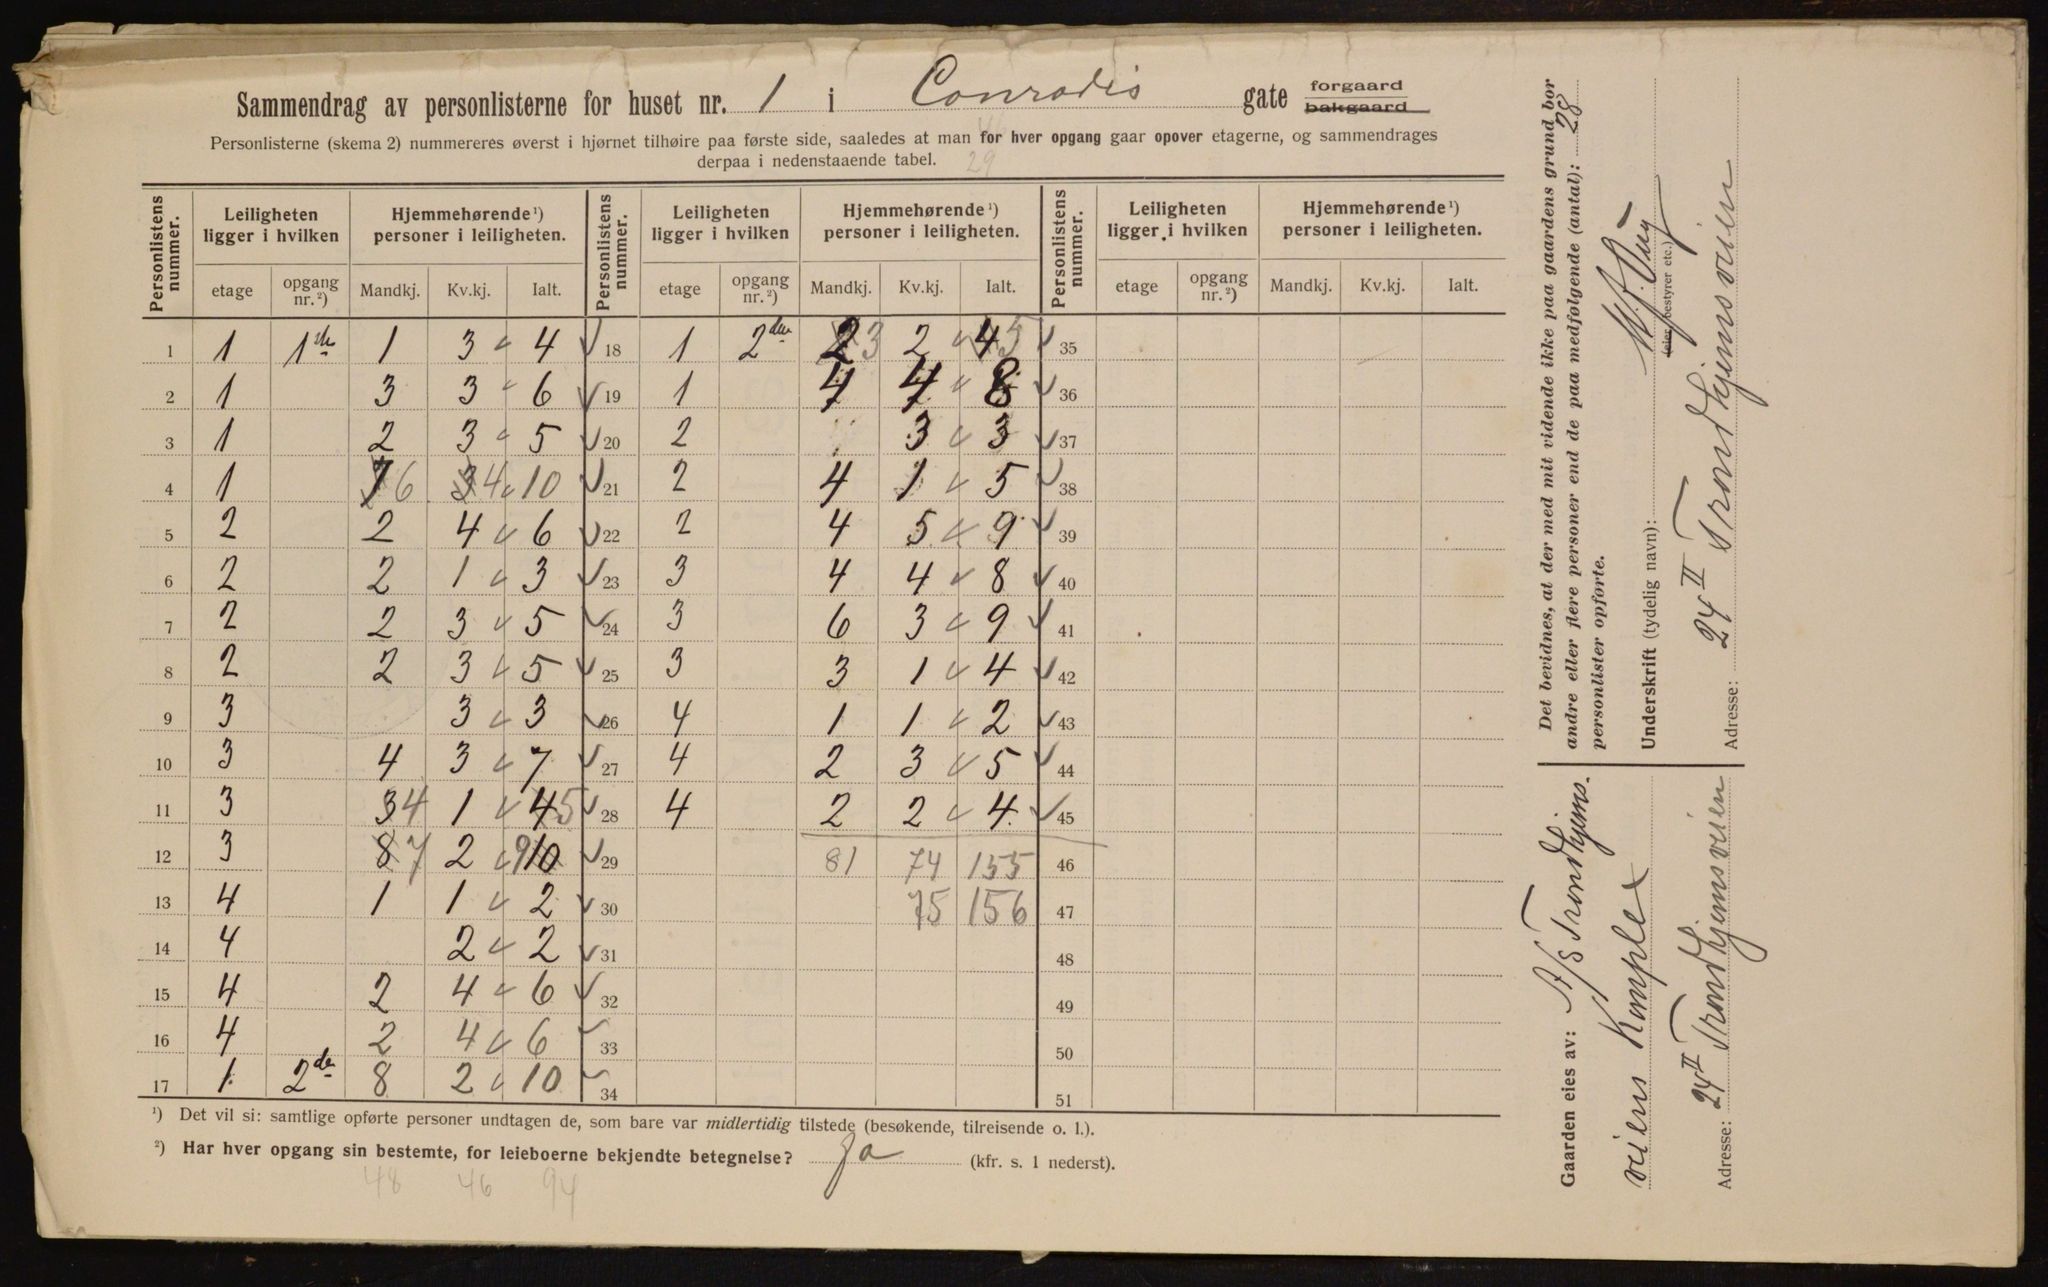 Sammendrag av personlisterne for huset nr. 1 i Conradis gate forgaard bakgaard
Personlisterne (skema 2) nummereres øverst i hjørnet tilhøire paa første side, saaledes at man for hver opgang gaar opover etagerne, og sammendrages
derpaa i nedenstaaende tabel. 29
Personlistens nummer. Leiligheten ligger i hvilken Hjemmehørende ¹) personer i leiligheten. Personlistens nummer. Leiligheten ligger i hvilken Hjemmehørende ¹) personer i leiligheten. Personlistens nummer. Leiligheten ligger i hvilken Hjemmehørende ¹) personer i leiligheten.
etage opgang nr. ²) Mandkj. Kv.kj. Ialt. etage opgang nr. ²) Mandkj. Kv.kj. Ialt. etage opgang nr. ²) Mandkj. Kv.kj. Ialt.
1 1 1ste 1 3 4 18 1 2den 2 3 2 4 5 35
2 1 3 3 6 19 1 4 4 8 36
3 1 2 3 5 20 2 3 3 37
4 1 7 6 3 4 10 21 2 4 1 5 38
5 2 2 4 6 22 2 4 5 9 39
6 2 2 1 3 23 3 4 4 8 40
7 2 2 3 5 24 3 6 3 9 41
8 2 2 3 5 25 3 3 1 4 42
9 3 3 3 26 4 1 1 2 43
10 3 4 3 7 27 4 2 3 5 44
11 3 3 4 1 4 5 28 4 2 2 4 45
12 3 8 7 2 9 10 29 81 74 155 46
13 4 1 1 2 30 75 156 47
14 4 2 2 31 48
15 4 2 4 6 32 49
16 4 2 4 6 33 50
17 1 2de 8 2 10 34 51
¹) Det vil si: samtlige opførte personer undtagen de, som bare var midlertidig tilstede (besøkende, tilreisende o. l.).
²) Har hver opgang sin bestemte, for leieboerne bekjendte betegnelse? Ja (kfr. s. 1 nederst).
48 46 94
Det bevidnes, at der med mit vidende ikke paa gaardens grund bor
andre eller flere personer end de paa medfølgende (antal): 28
personlister opførte.
Underskrift (tydelig navn):
(eier, bestyrer etc.)
Adresse: 24 II Trondhjemsveien
Gaarden eies av: A/S Trondhjems-
veiens Komplex
Adresse: 24 II Trondhjemsveien